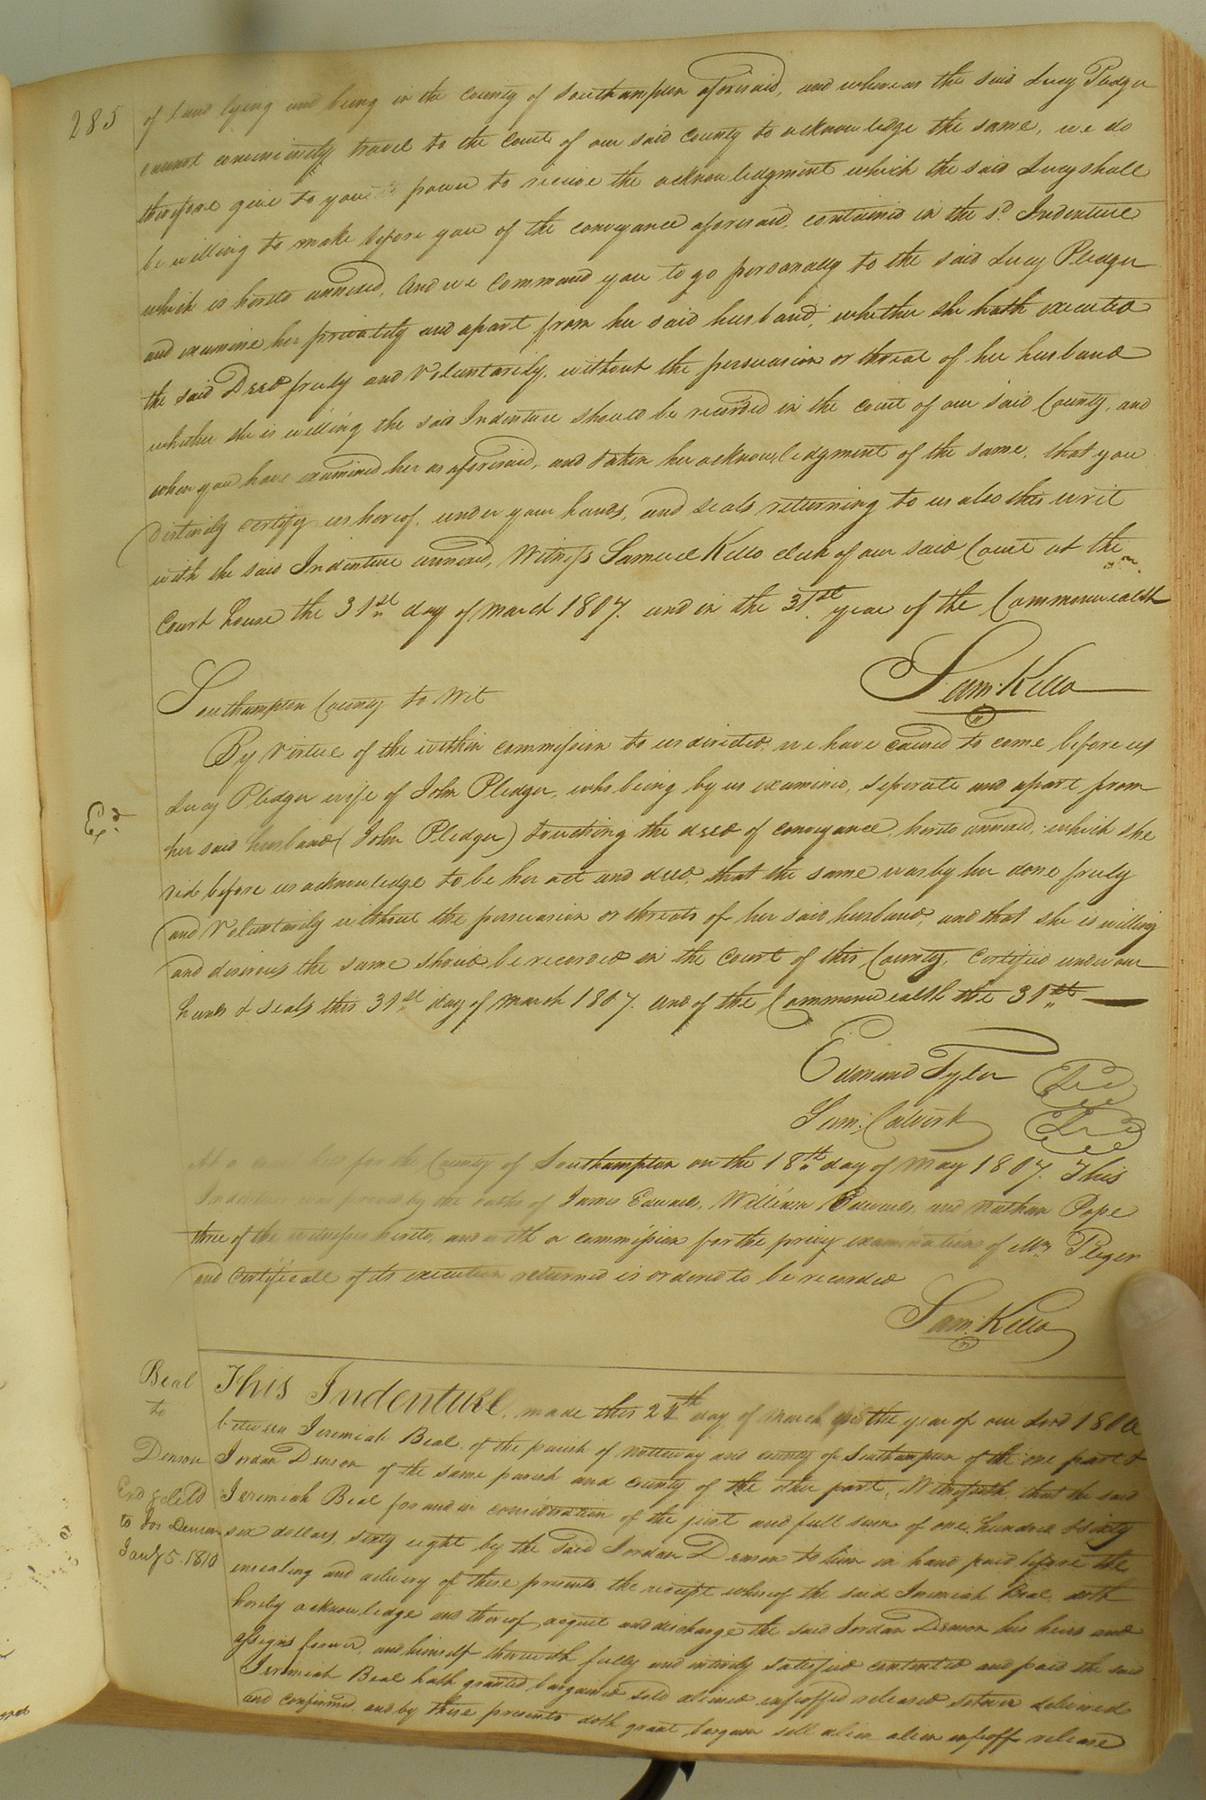 285
of Land lying and being in the County of Southampton aforesaid, and whereas the said Lucy Pledger
cannot conveniently travel to the Court of our said County to acknowledge the same, we do
therefore give to you power to receive the acknowledgment which the said Lucy shall
be willing to make before you of the conveyance aforesaid, contained in the sd. Indenture
which is hereto annexed, And we Command you to go personally to the said Lucy Pledger
and examine her privately and apart from her said husband, whether she hath executed
the said Deed freely and Voluntarily, without the persuasion or threat of her husband
whether she is willing the said Indenture should be recorded in the Court of our said County, and
when you have examined her as aforesaid, and taken her acknowledgment of the same, that you
distinctly certify us hereof, under your hands, and seals returning to us also this writ
with the said Indenture annexed, Witness Samuel Kello clerk of our said Court at the
Court house the 31st day of March 1807. and in the 31st year of the Commonwealth
Sam: Kello
Southampton County to Wit
By Virtue of the within commission to us directed, we have caused to come before us
Lucy Pledger wife of John Pledger, who being by us examined, seperate and apart from
Exd.
her said husband (John Pledger) touching the deed of conveyance, hereto annexed, which she
did before us acknowledge to be her act and deed, that the same was by her done freely
and Voluntarily without the persuasion or threats of her said husband, and that she is willing
and desirous the same should be recorded in the Court of this County, Certified under our
hands & seals this 31st day of March 1807. and of the Commonwealth the 31st
Edmund Tyler Seal
Sam: Calvert Seal
At a court held for the County of Southampton on the 18th day of May 1807. This
Indenture was proved by the oaths of James Edwards, William Edwards, and Nathan Pope
three of the witnesses hereto, and with a commission for the privy examination of Mrs Pleger
and Certificate of its execution returned is ordered to be recorded
Sam: Kello
Beal
to
Denson
Exd & deld
to Jor: Denson
Jany 5. 1810
This Indenture, made this 24th day of March the year of our Lord
between Jeremiah Beal of the parish of Nottoway and county of Southampton of the one part &
Jordan Denson of the same parish and county of the other part, Witnesseth that the said
Jeremiah Beal for and in consideration of the just and full sum of one hundred & sixty
six dollars, sixty eight by the said Jordan Denson to him in hand paid before the
ensealing and delivery of these presents the receipt whereof the said Jeremiah Beal doth
hereby acknowledge and thereof acquit and discharge the said Jordan Denson his heirs and
assigns forever, and himself therewith fully and intirely satisfied contented and paid the said
Jeremiah Beal hath granted bargained sold aliened enfeoffed released delivered
and confirmed, and by these presents doth grant, bargain sell alien alien enfeoff release